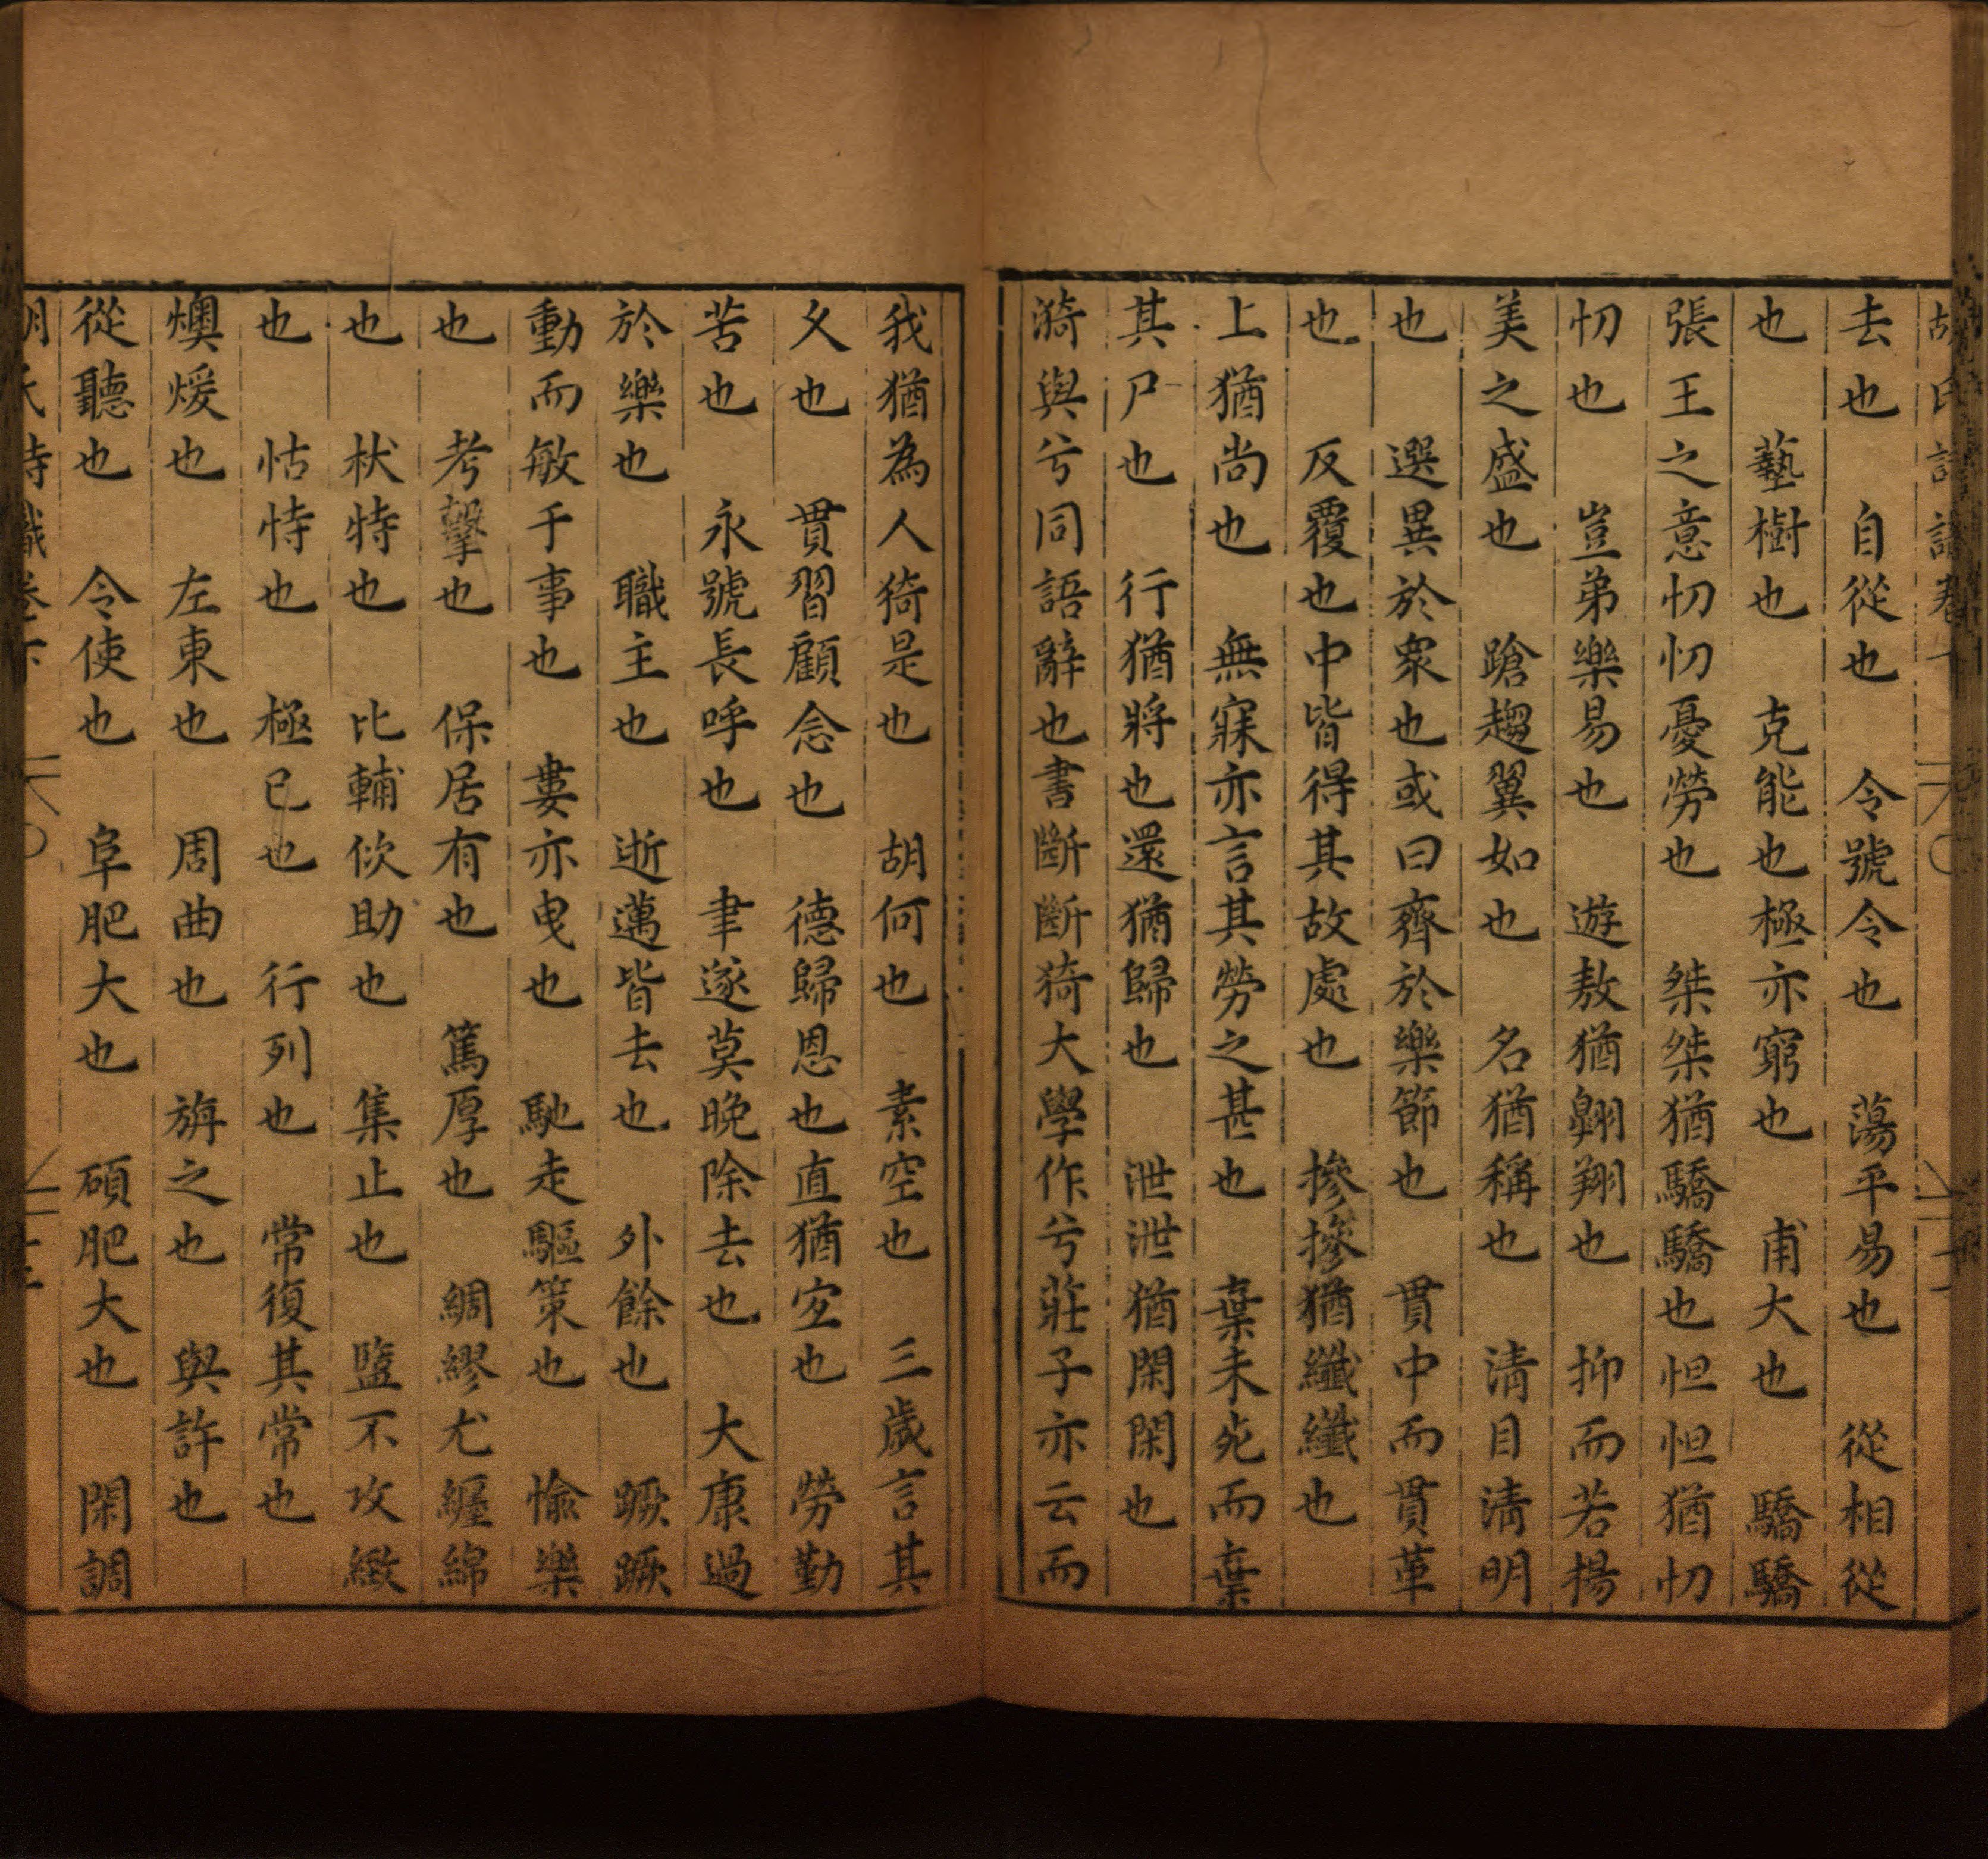 胡氏詩識卷下
去也　自從也　令號令也　蕩平易也　從相從
也　藝樹也　克能也極亦窮也　甫大也　驕驕
張王之意忉忉憂勞也　桀桀猶驕驕也怛怛猶忉
忉也　豈弟樂易也　遊敖猶翺翔也　抑而若揚
美之盛也　蹌趨翼如也　名猶稱也　清目清明
也　選異於衆也或曰齊於樂節也　貫中而貫革
也　反覆也中皆得其故處也　摻摻猶纖纖也
上猶尚也　無寐亦言其勞之甚也　棄未死而棄
其尸也　行猶將也還猶歸也　泄泄猶閑閑也
漪與兮同語辭也書斷斷猗大學作兮莊子亦云而
我猶為人猗是也　胡何也　素空也　三歲言其
久也　貫習顧念也　德歸恩也直猶宜也　勞勤
苦也　永號長呼也　聿遂莫晚除去也　大康過
於樂也　職主也　逝邁皆去也　外餘也　蹶蹶
動而敏于事也　婁亦曳也　馳走驅策也　愉樂
也　考擊也　保居有也　篤厚也　綢繆尤纏綿
也　杕特也　比輔佽助也　集止也　盬不攻緻
也　怙恃也　極已也　行列也　常復其常也
燠煖也　左東也　周曲也　旃之也　與許也
從聽也　令使也　阜肥大也　碩肥大也　閑調
胡氏詩識卷下